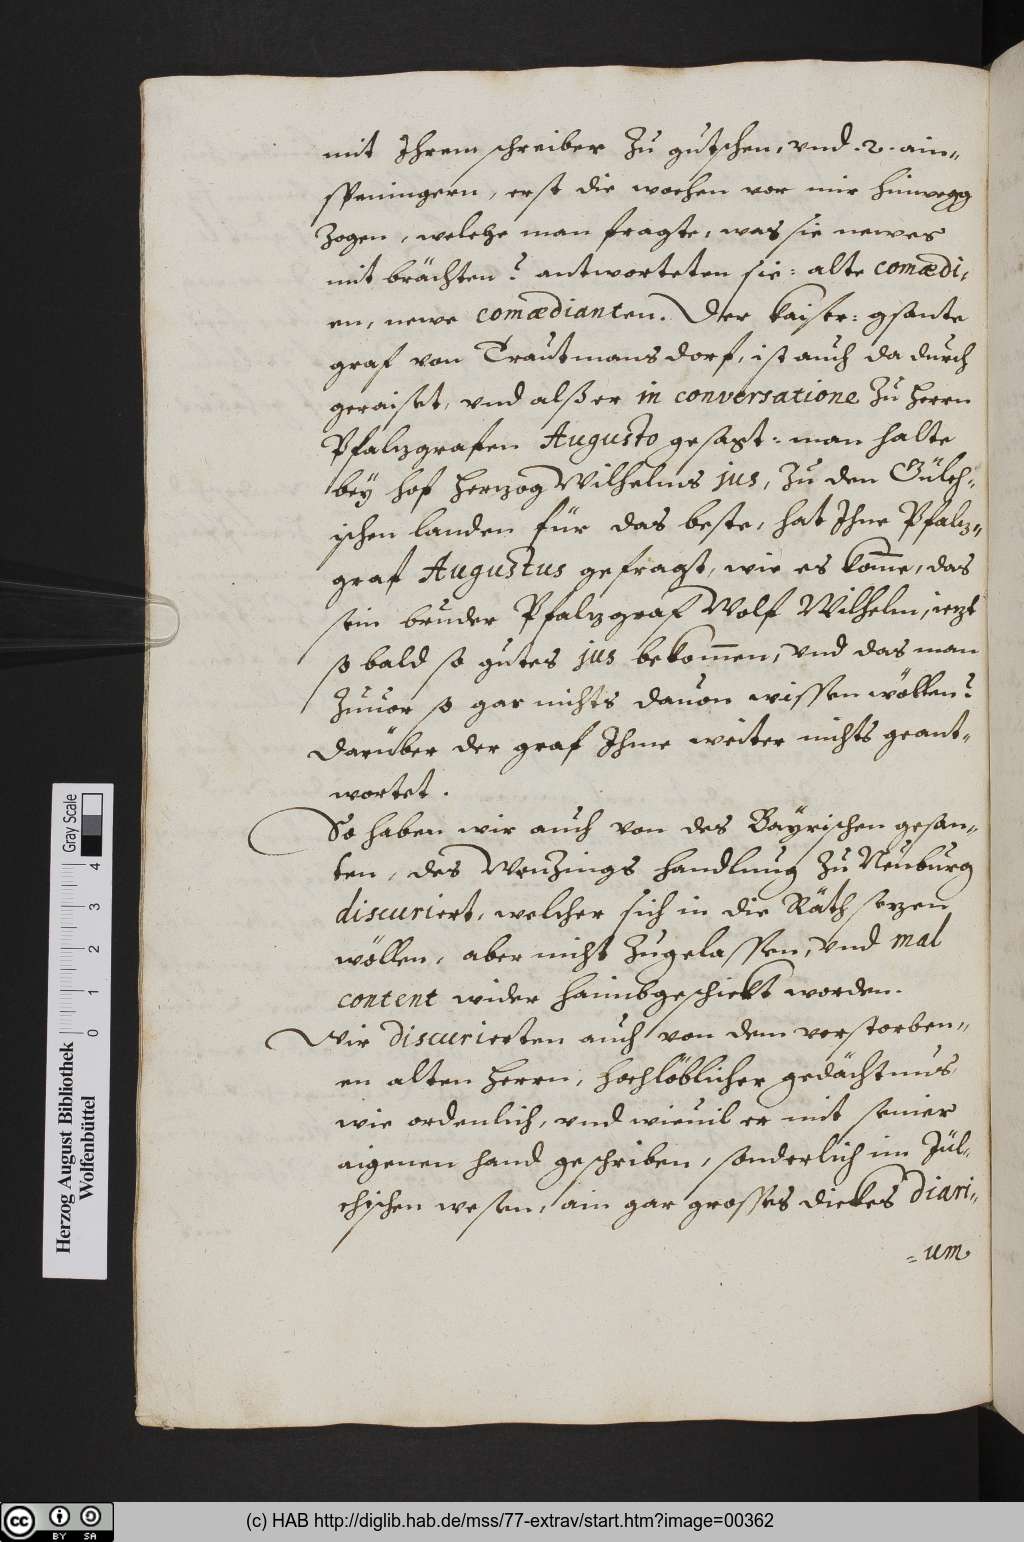 mit Ihrem schreiber zu gutschen, vnd .2. ain„
speningern, erst die wochen vor mir hinwegg
zogen, welche man fragte, was sie newes
mit brächten? antworteten sie: alte comædi„
en, newe comædianten. Der kaiser: gsante
graf von Trautmansdorf, ist auch da durch
geraiset, vnd alß er in conversatione zu herrn
Pfalzgrafen Augusto gesagt: man halte
bey hof herzog Wilhelms jus, zu den Gülch„
ischen landen für das beste, hat Ihne Pfalz„
graf Augustus gefragt, wie es kom̄e, das
sein bruder Pfalzgraf Wolf Wilhelm, iezt
so bald so gutes jus bekom̄en, vnd das man
zuuor so gar nichts dauon wissen wöllen?
darüber der graf Ihme weiter nichts geant„
wortet.
So haben wir auch von des Bayrischen gesan„
ten, des Wenzings handlung zu Neuburg
discuriert, welcher sich in die Räth sezen
wöllen, aber nicht zugelassen, vnd mal
content wider haimbgeschickt worden.
Wir discurierten auch von dem verstorben„
en alten herrn, hochlöblicher gedächtnus
wie ordenlich, vnd wieuil er mit seiner
aigenen hand geschriben, sonderlich im Jül„
chischen wesen, ain gar grosses dickes diari„
=um
Herzog August Bibliothek
Wolfenbüttel
0 1 2 3 4
Gray Scale
cc BY SA
(c) HAB http://diglib.hab.de/mss/77-extrav/start.htm?image=00362